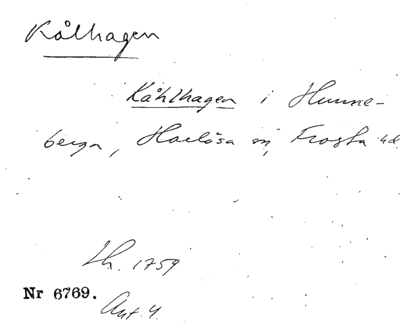 Kålhagen
Kåhlhagen i Hunne-
berga, Harlösa sn, Frosta hd.
Lh. 1759
Nr 6769.
Akt 4.